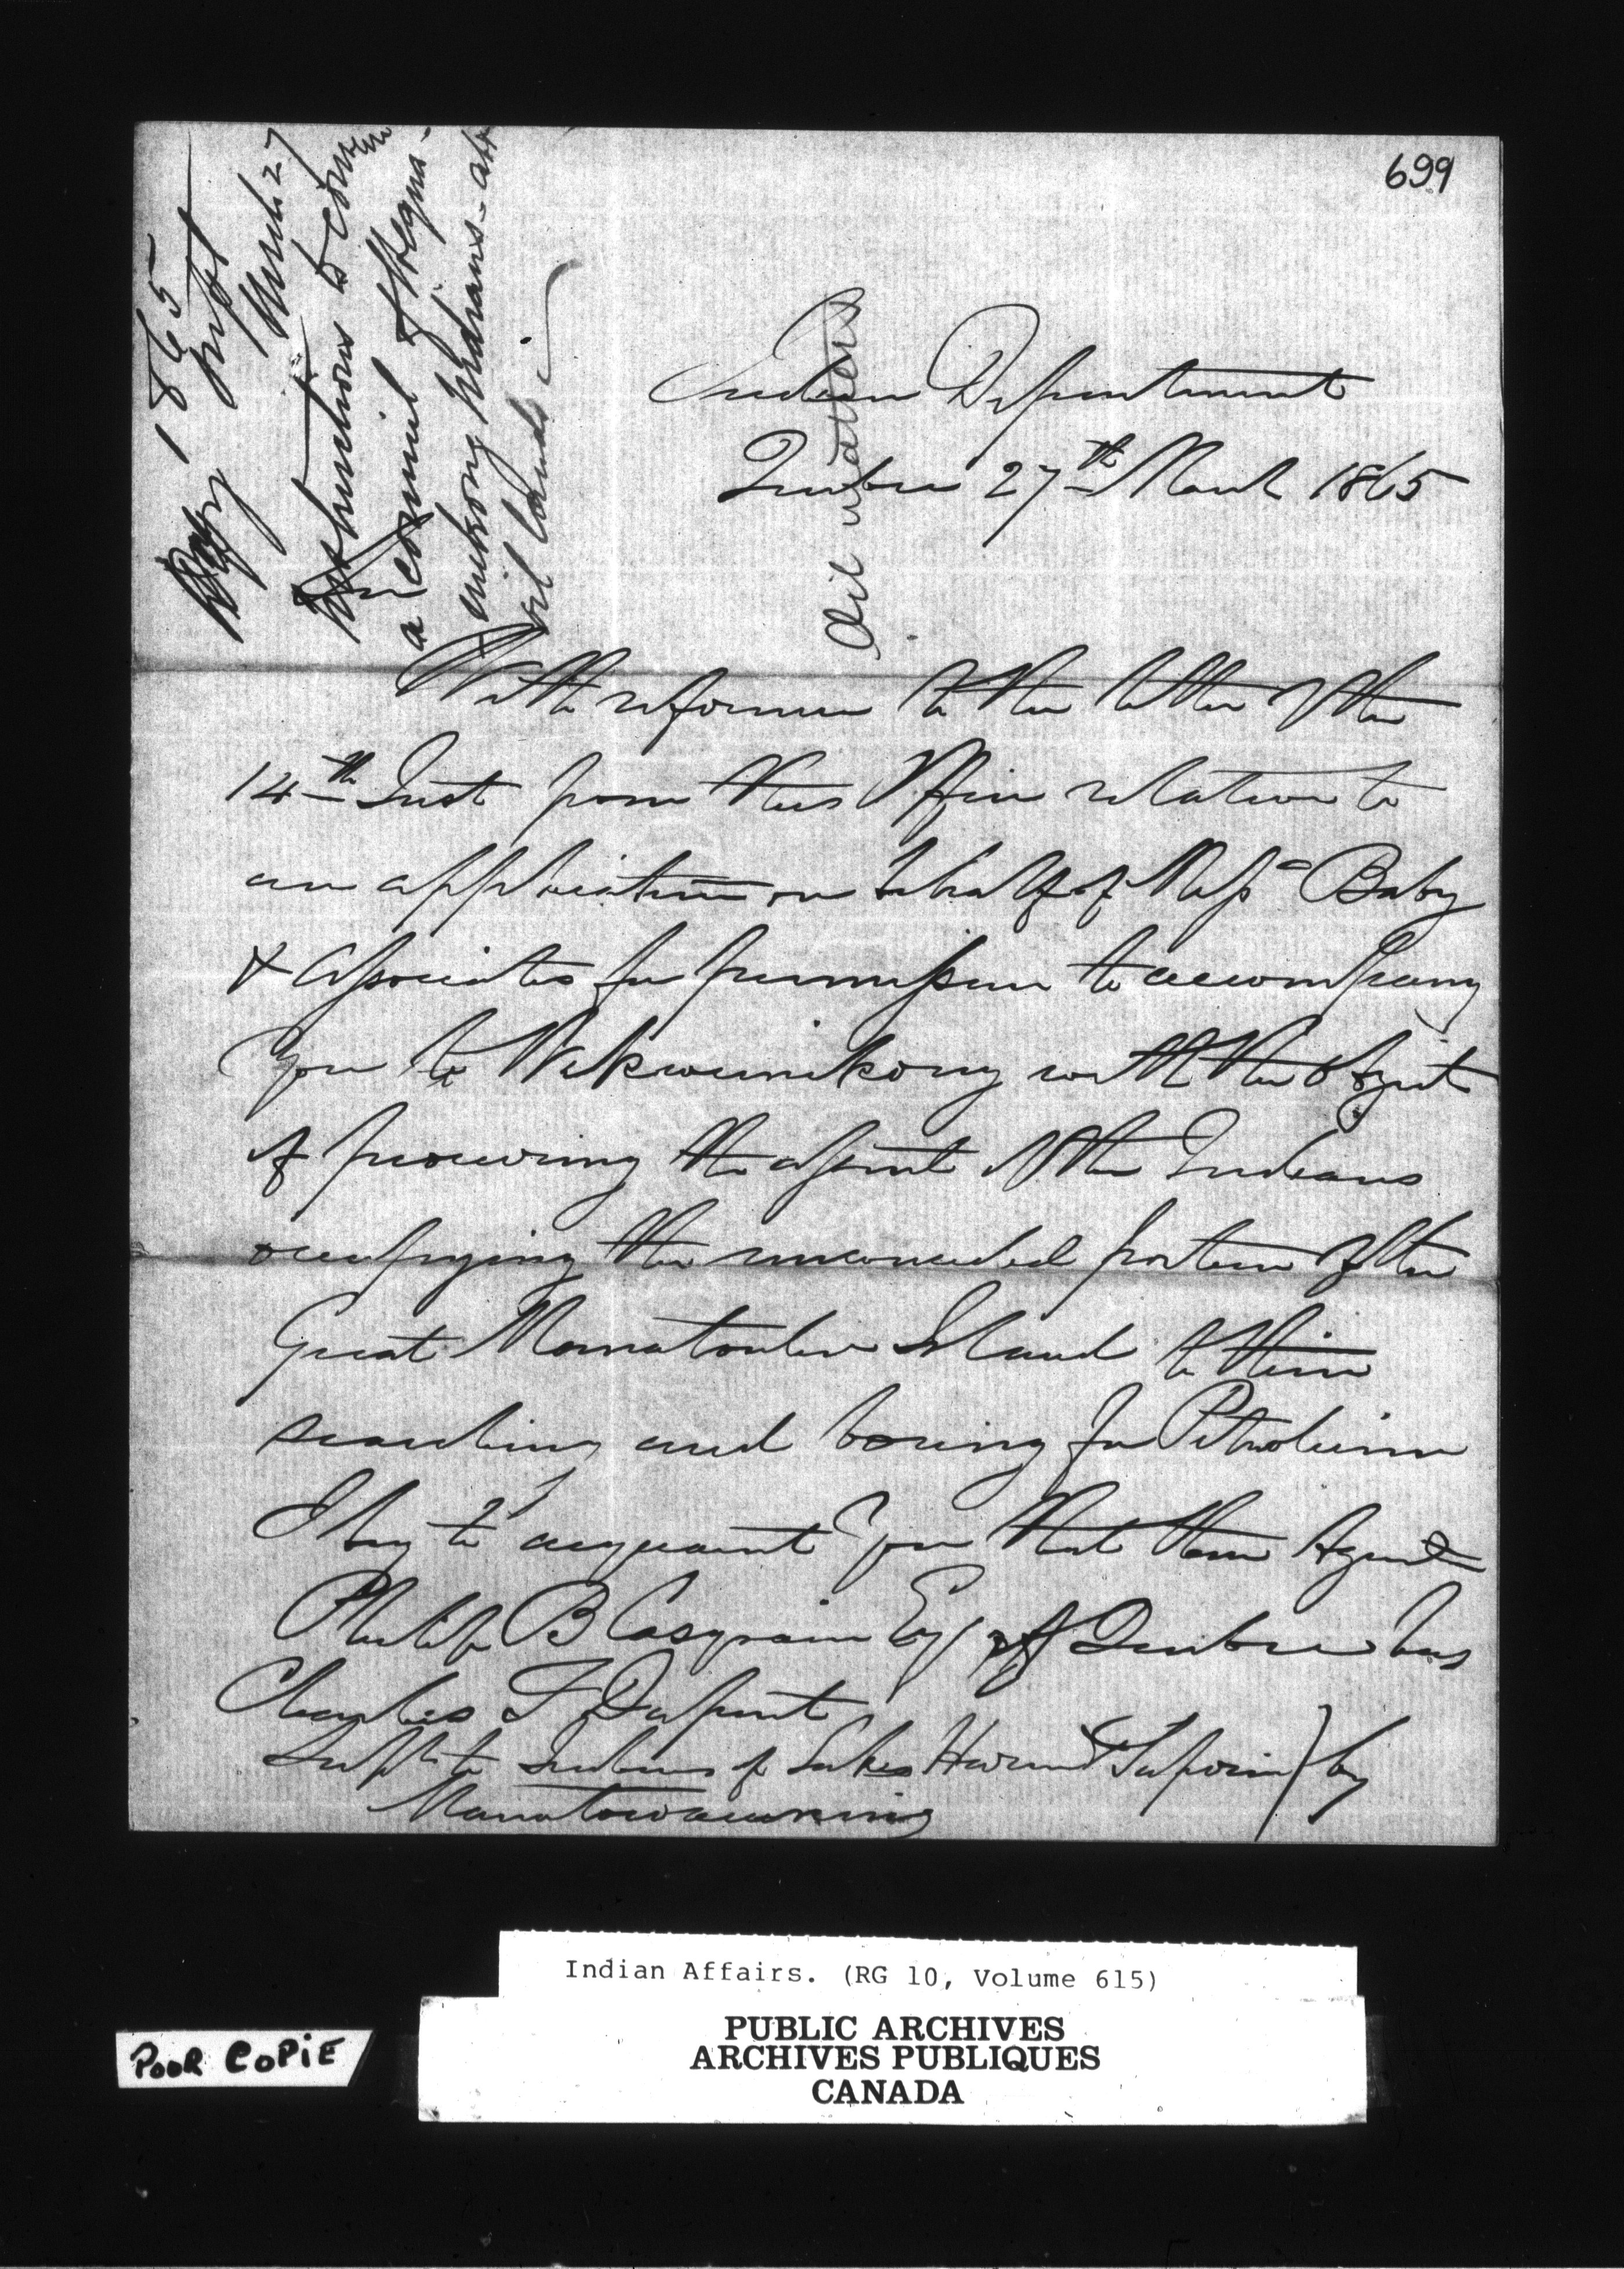 699
1865
March 27
Instructions to convene
a council of Wequa-
mikong Indians - abt
oil lands
Oil matters
Indian Department
Quebec 27th March 1865
Sir
With reference to the letter of the
14th Inst from this Office relative to
an application on behalf of Messrs Baby
& Associates for permission to accompany
you to Wikwemikong with the object
of procuring the assent of the Indians
occupying the unconceded portion of the
Great Manatoulin Island to their
searching and boring for Petroleum
I beg to acquaint you that their Agent
Philip B Casgrain Esq of Quebec has
Charles T Dupont
Supt to Indians of Lakes Huron & Superior } by
Manatowanning
Indian Affairs. (RG 10, Volume 615)
POOR COPIE
PUBLIC ARCHIVES
ARCHIVES PUBLIQUES
CANADA